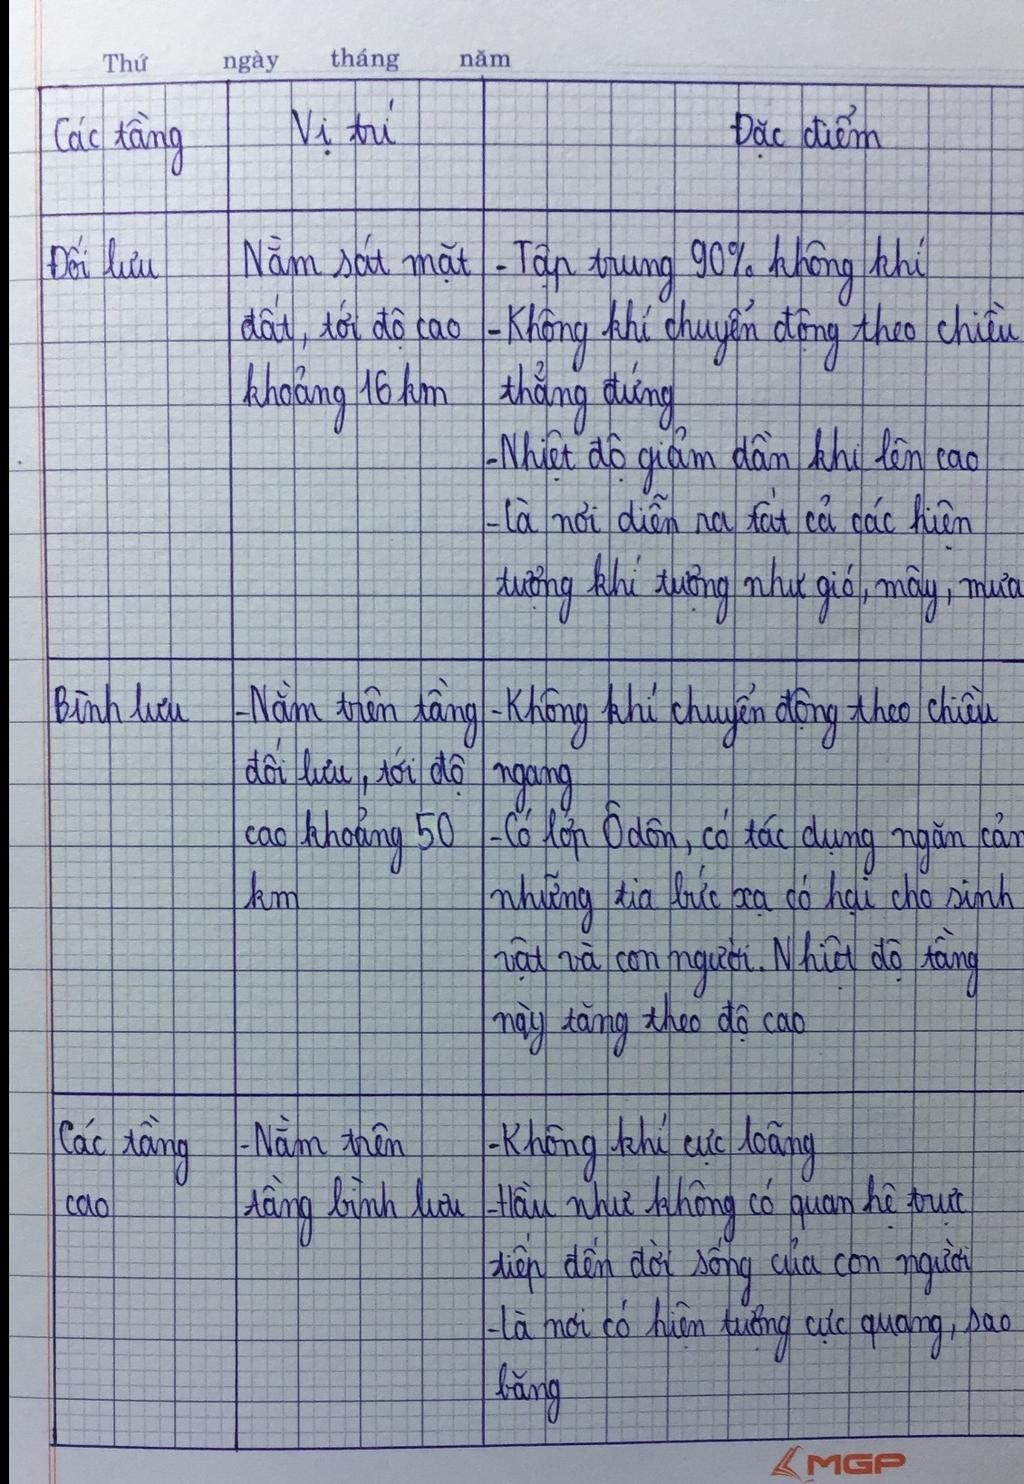 Thứ ngày tháng năm
Các tầng Vị trí Đặc điểm
Đối lưu Nằm sát mặt - Tập trung 90% không khí
đất, tới độ cao - Không khí chuyển động theo chiều
khoảng 16 km thẳng đứng
- Nhiệt độ giảm dần khi lên cao
- Là nơi diễn ra tất cả các hiện
tượng khí tượng như gió, mây, mưa
Bình lưu - Nằm trên tầng - Không khí chuyển động theo chiều
đối lưu, tới độ ngang
cao khoảng 50 - Có lớp Ôdôn, có tác dụng ngăn cản
km những tia bức xạ có hại cho sinh
vật và con người. Nhiệt độ tầng
này tăng theo độ cao
Các tầng - Nằm trên - Không khí cực loãng
cao tầng bình lưu - Hầu như không có quan hệ trực
tiếp đến đời sống của con người
- Là nơi có hiện tượng cực quang, sao
băng
MGP